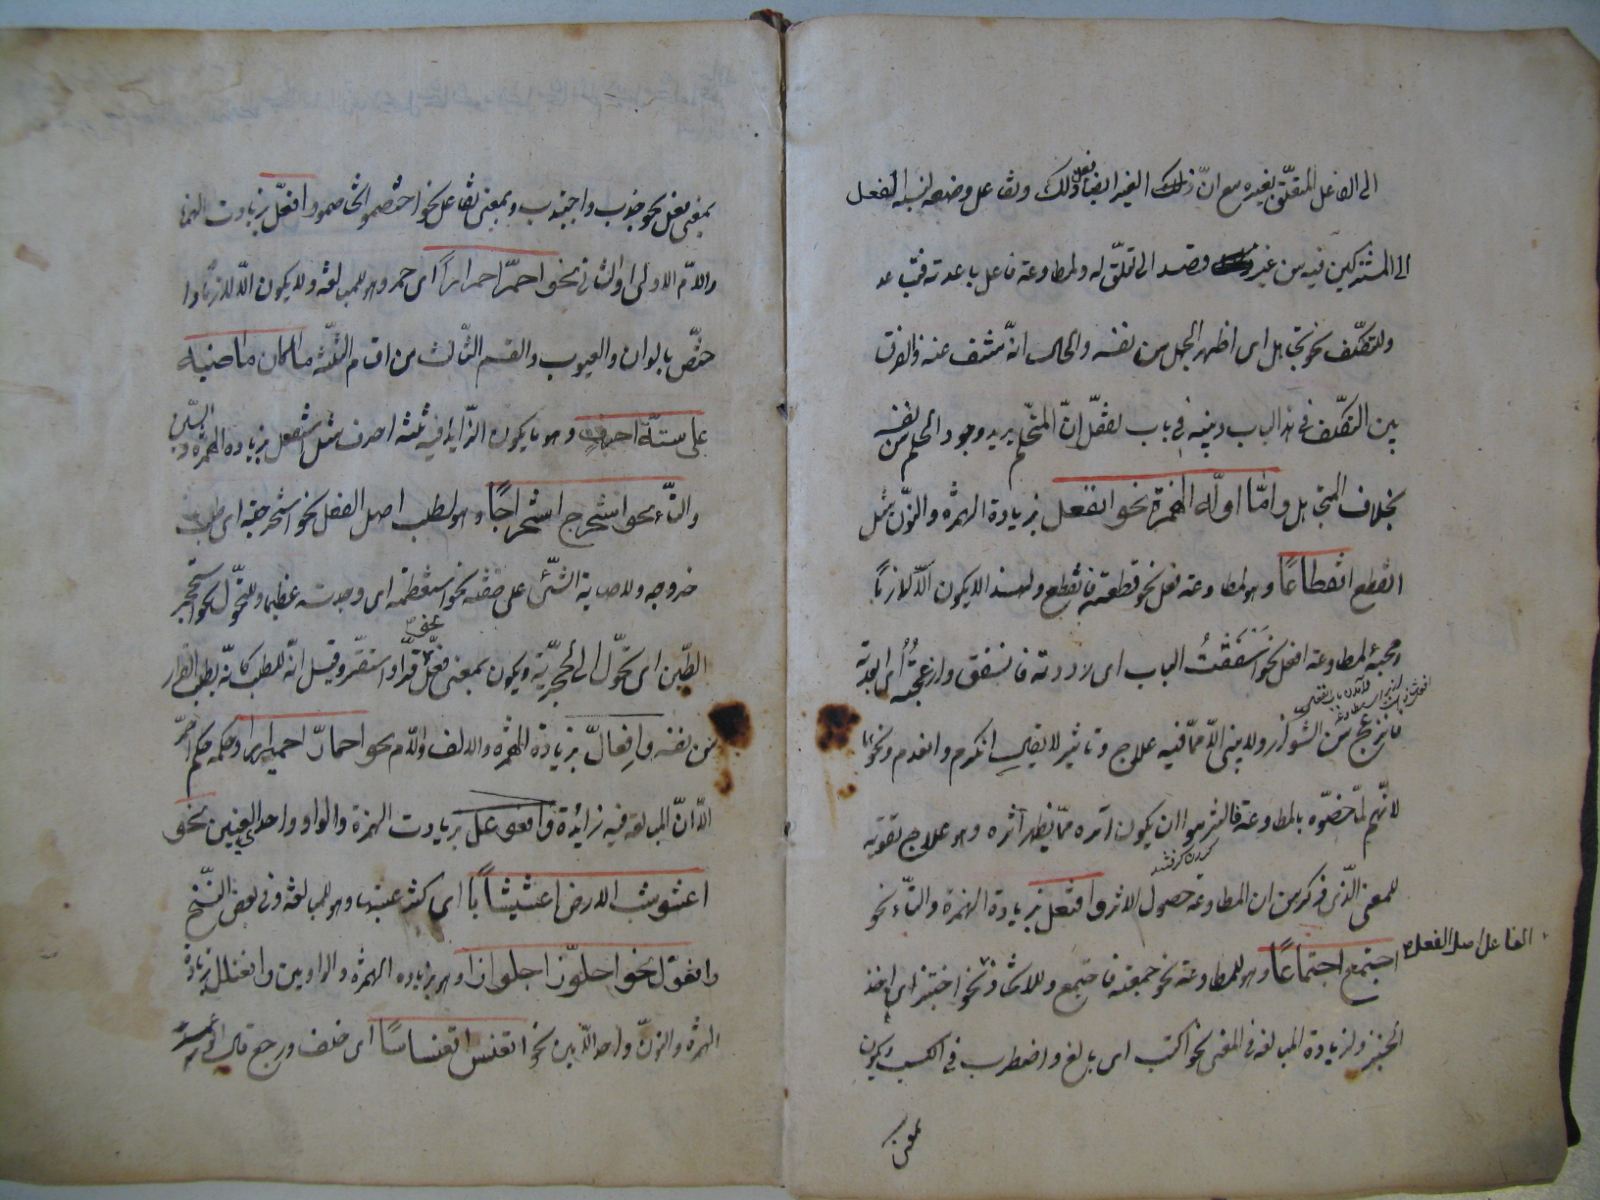 الى الفاعل المتعلّق بغيره مع انّ ذلك الغير ايضا فعل ذلك وتفاعل وضعه لنسبة الفعل
الى المشتركين فيه من غير قصد الى تعلّق له ولمطاوعة فاعل باعدته فتباعد
وللتكلّف نحو تجاهل اى اظهر الجهل من نفسه والحال انّه منتف عنه والفرق
بين التكلّف فى هذا الباب وبينه فى باب تفعّل انّ المتحلّم يريد وجود الحلم من نفسه
بخلاف المتجاهل وامّا اوله الهمزة نحو انفعل بزيادة الهمزه والنون مثل
انقطع انقطاعًا وهو لمطاوعة فعل نحو قطعته فانقطع ولهذا لايكون الّا لازمًا
ومجيئه لمطاوعة افعل نحو اسفقتُ الباب اى رددته فانسفق وازعجتُه اى ابعدته
فانزعج من الشواذ ولايبنى الّا ممّا فيه علاج وتاثير لايقال انكرم وانعدم ونحوهما
لانّهم لمّا خصّوه بالمطاوعة فالتزموا ان يكون امره ممّا يظهر اثره وهو علاج تقوية
كردن كرفتند
للمعنى الّذى ذكر من ان المطاوعة حصول الاثر وافتعل بزيادة الهمزة والتّاء نحو
الفاعل اصل الفعل
اجتمع اجتماعًا وهو للمطاوعة نحو جمعته فاجتمع وللاتخاذ نحو اختبز اى اخذ
الخبز ولزيادة المبالغه فى المعنى نحو اكتسب اى بالغ واضطرب فى الكسب ويكون
بمعنى
بمعنى فعل نحو جذب واجتذب وبمعنى تفاعل نحو اختصموا اى تخاصموا وافعلّ بزيادت الهمزة
واللام الاولى او الثانى نحو احمرّ احمرارًا اى حمر وهو للمبالغه ولا يكون الّا لازما وا
ختصّ بالوان والعيوب والقسم الثّالث من اقسام الثلثه ما كان ماضيه
على ستّة احرف وهو ما يكون الزّايد فيه ثلثه احرف مثل استفعل بزياده الهمزه والسّين
والتّاء نحو استخرج استخراجًا وهو لطلب اصل الفعل نحو استخرجته اى طلبت
خروجه ولاصابة الشّئ على صفته نحو استعظمته اى وجدته عظيما وللتحوّل نحو استحجر
الطّين اى تحوّل الى الحجريّة ويكون بمعنى فعل نحو قرّ واستقرّ وقيل انّه للطلب كانّه يطلب القرار
من نفسه وافعالّ بزيادة الهمزه والالف واللام نحو احمارّ احميرارا وحكمه حكم احمرّ
الّا انّ المبالغه فيه زائدة وافعوعل بزيادت الهمزة والواو واحدى العينين نحو
اعشوشب الارض اعشيشابًا اى كثر عشبها وهو للمبالغه وفى بعض النّسخ
وافعوّل نحو اجلوّذ اجلواذا وهو بزياده الهمزه والواوين وافعنلل بزيادة
الهمزه والنون واحد اللامين نحو اقعنسس اقعنساسًا اى خلف ورجع